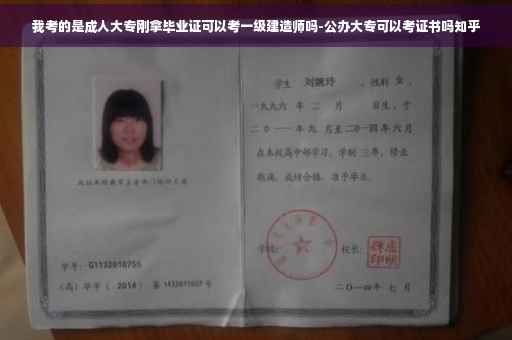 我考的是成人大专刚拿毕业证可以考一级建造师吗-公办大专可以考证书吗知乎
学生 刘婉玲 ，性别 女 ，
一九九六 年 二 月 日生，于
二〇一一年九 月至二〇一四年 六月
在本校高中部学习，学制 三年，修业
期满，成绩合格，准予毕业。
学号：G1132010755
（高）毕字（ 2014 ）第 1432011027 号
学校：
校长：
二〇一四年 七 月